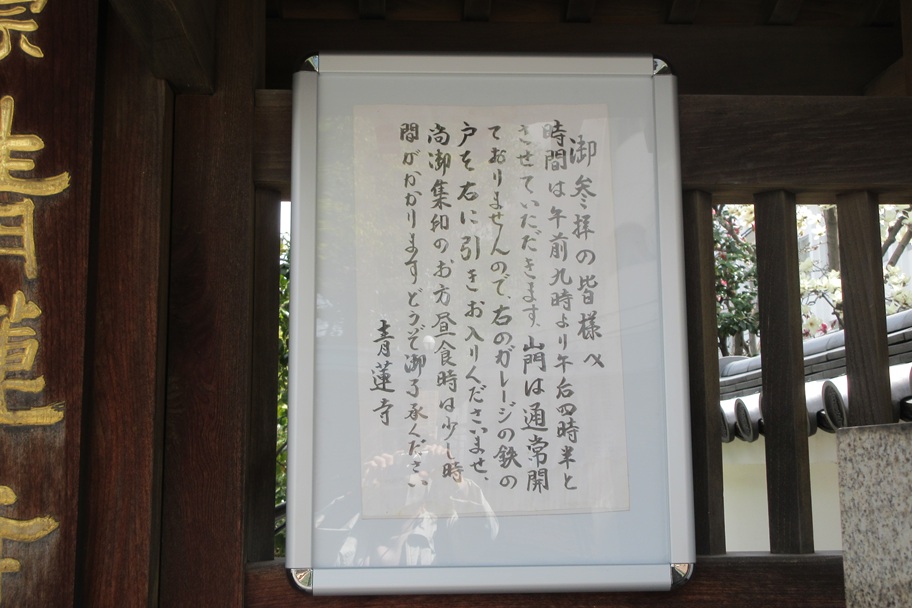 御参拝の皆様へ
時間は午前九時より午后四時半と
させていただきます。山門は通常開
ておりませんので、右のガレージの鉄の
戸を右に引きお入りくださいませ。
尚御集印のお方昼食時は少し時
間がかかりますどうぞ御了承ください
青蓮寺
青蓮寺